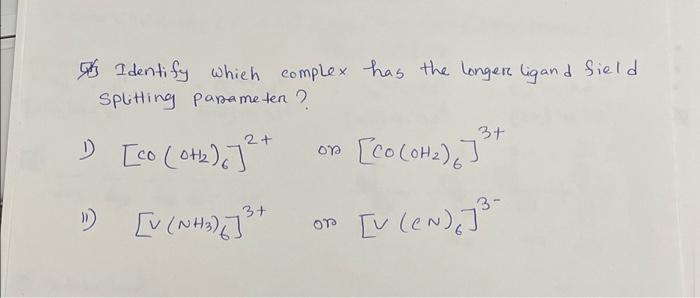 Identify which complex has the longer ligand field
splitting parameter?
1) [CO(OH2)6]2+ or [CO(OH2)6]3+
11) [V(NH3)6]3+ or [V(CN)6]3-